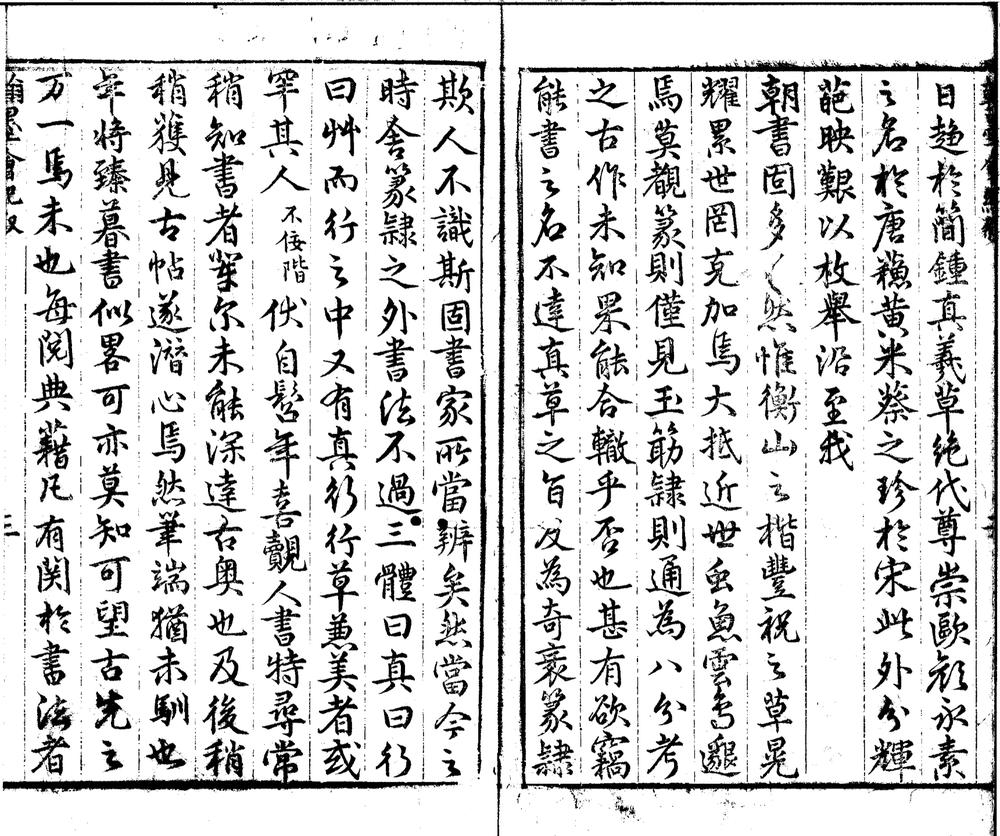 日趍於簡鍾真羲草絶代尊崇歐顔永素
之名於唐蘓黄米蔡之珍於宋此外分輝
葩映艱以枚舉沿至我
朝書固多〱然惟衡山之楷豐祝之草晃
耀累世罔克加焉大抵近世虫魚雲鳥邈
焉莫觀篆則僅見玉筯隷則通為八分考
之古作未知果能合轍乎否也甚有欲竊
能書之名不達真草之旨反為奇袤篆隷
欺人不識斯固書家所當辨矣然當今之
時舎篆隷之外書法不過三體曰真曰行
曰艸而行之中又有真行行草兼美者或
罕其人不佞階伏自髫年喜觀人書特尋常
稍知書者輩尓未能深達古奥也及後稍
稍獲見古帖遂潜心焉然筆端猶未馴也
年将臻暮書似畧可亦莫知可望古先之
万一焉未也每閲典籍凡有関於書法者
翰墨會紀叙
三